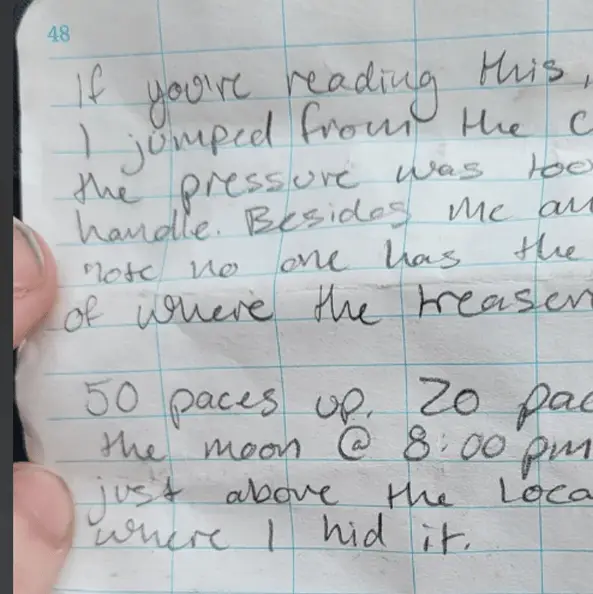 48
If you're reading this,
I jumped from the
the pressure was too
handle. Besides me
note no one has the
of where the
50 paces up. 20
the moon @ 8:00 pm
just above the
where I hid it.